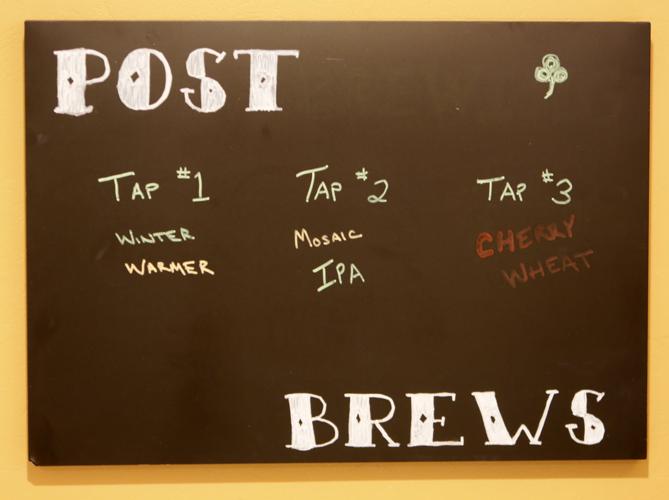 POST
TAP #1
WINTER
WARMER
TAP #2
MOSAIC
IPA
TAP #3
CHERRY
WHEAT
BREWS